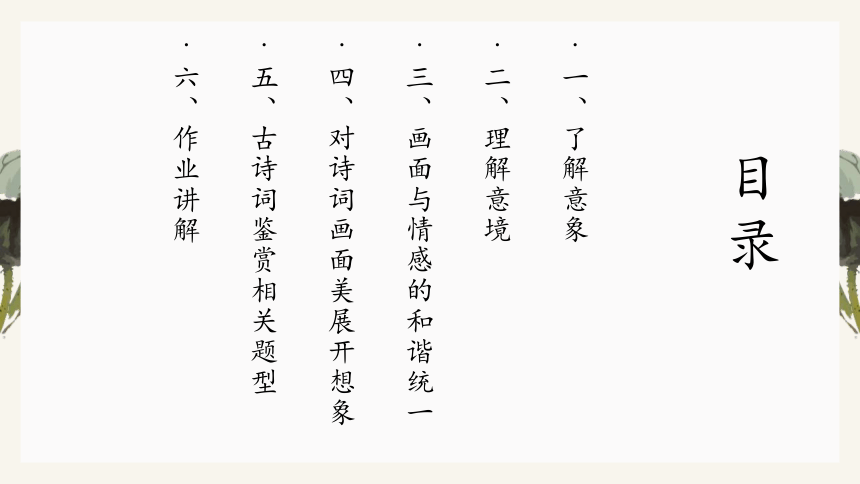 目录
· 一、了解意象
· 二、理解意境
· 三、画面与情感的和谐统一
· 四、对诗词画面美展开想象
· 五、古诗词鉴赏相关题型
· 六、作业讲解